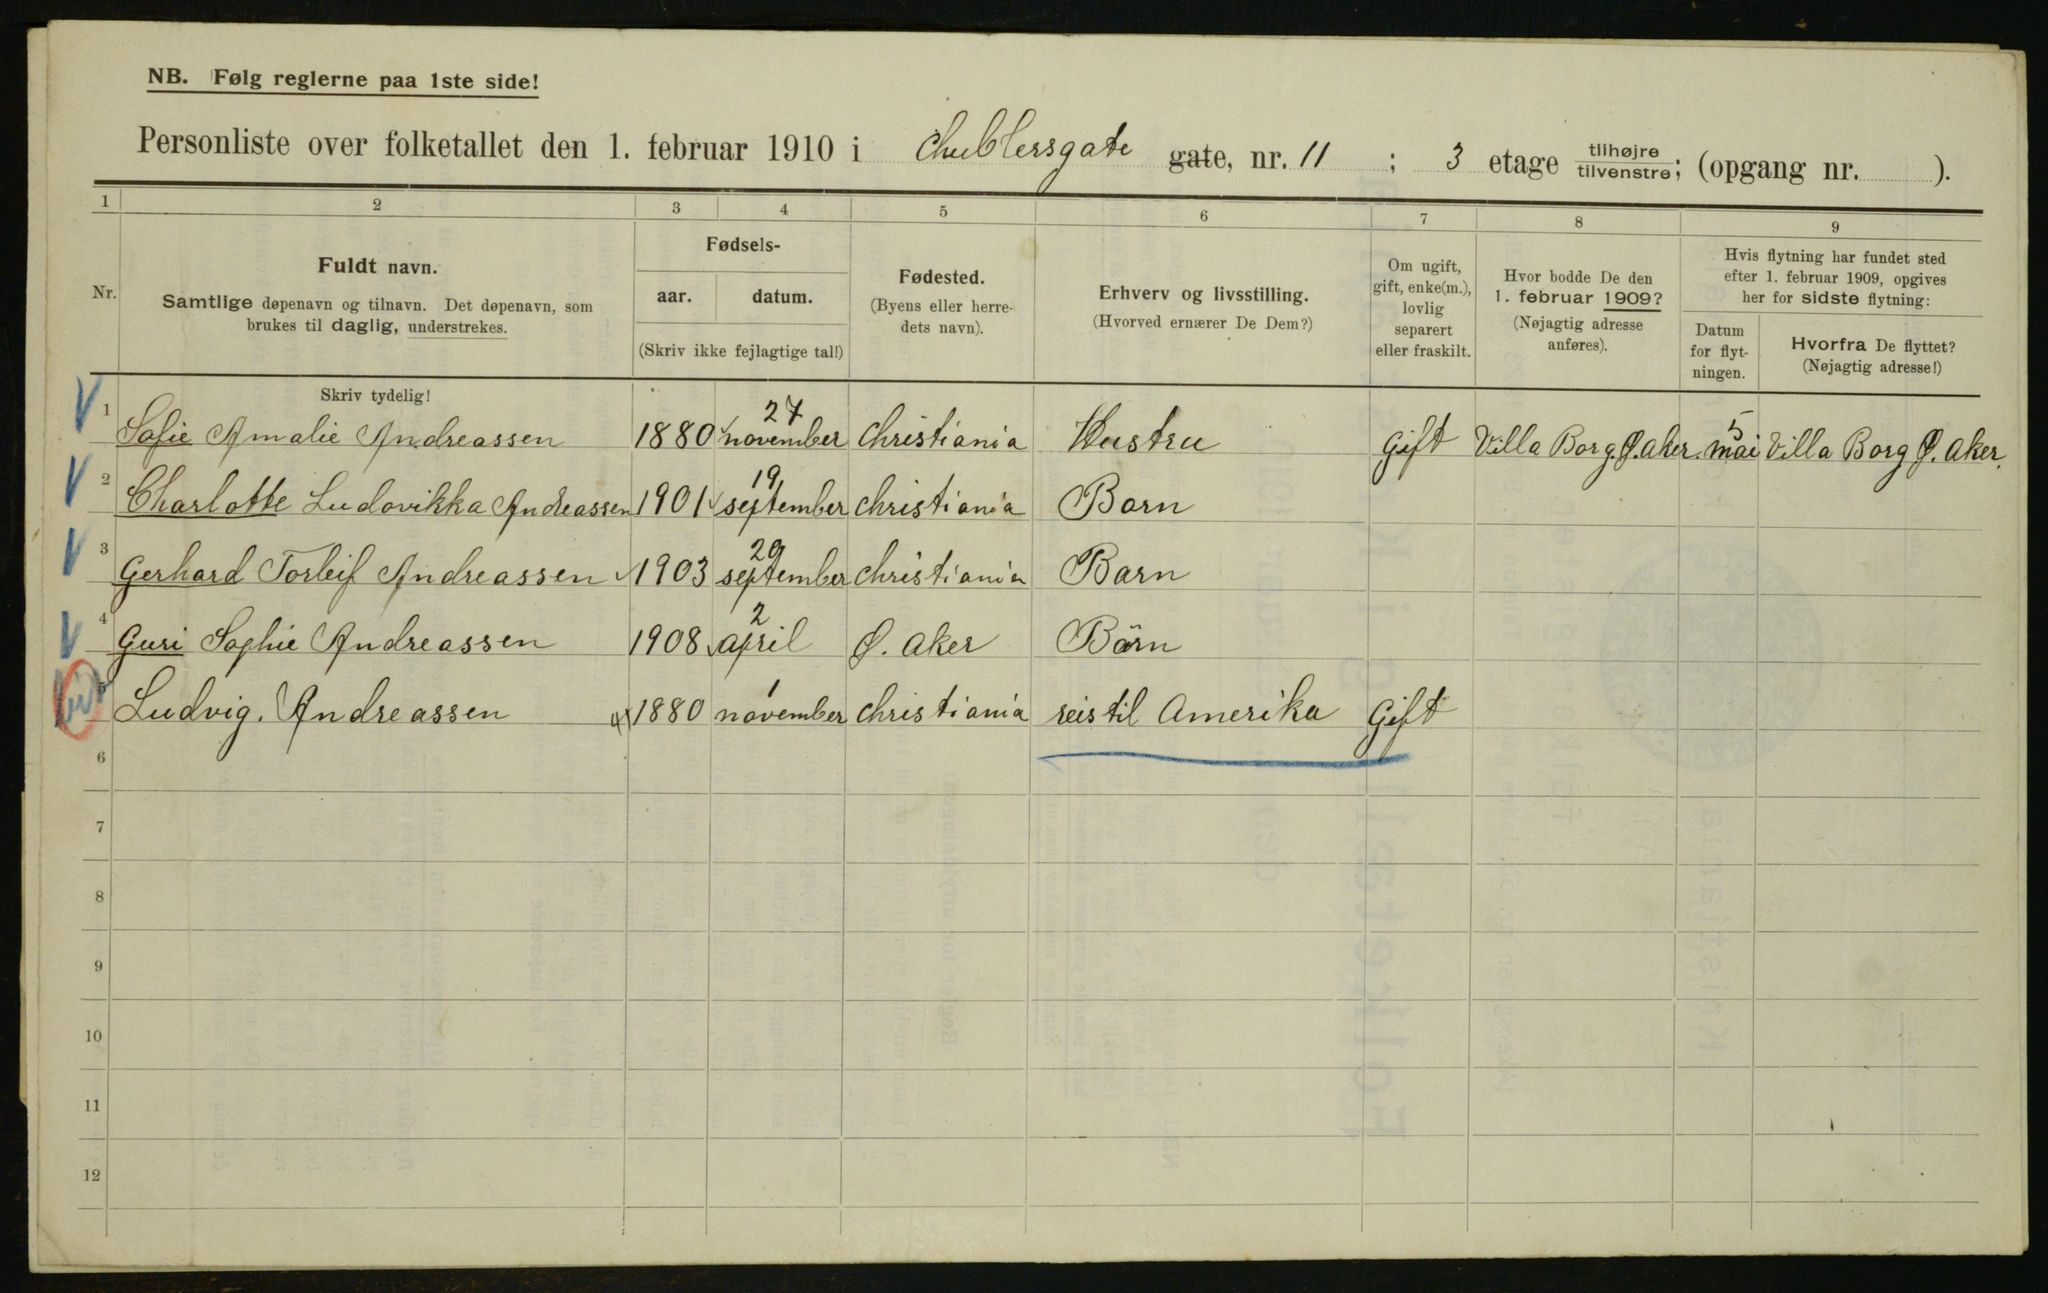 NB. Følg reglerne paa 1ste side!
Personliste over folketallet den 1. februar 1910 i Chublersgate gate, nr. 11 ; 3 etage tilhøjre tilvenstre; (opgang nr. ).
1 2 3 4 5 6 7 8 9
Nr.
Fuldt navn.
Samtlige døpenavn og tilnavn. Det døpenavn, som
brukes til daglig, understrekes.
Fødsels-
aar. datum.
(Skriv ikke fejlagtige tal!)
Fødested.
(Byens eller herre-
dets navn).
Erhverv og livsstilling.
(Hvorved ernærer De Dem?)
Om ugift,
gift, enke(m.),
lovlig
separert
eller fraskilt.
Hvor bodde De den
1. februar 1909?
(Nøjagtig adresse
anføres).
Hvis flytning har fundet sted
efter 1. februar 1909, opgives
her for sidste flytning:
Datum
for flyt-
ningen.
Hvorfra De flyttet?
(Nøjagtig adresse!)
Skriv tydelig!
1 Sofie Amalie Andreassen 1880 27 november Christiania Hustru Gift Villa Borg. Ø. Aker. 5 mai Villa Borg Ø. Aker.
2 Charlotte Ludovikka Andreassen 1901 19 september Christiania Barn
3 Gerhard Torleif Andreassen 1903 29 september Christiania Barn
4 Guri Sophie Andreassen 1908 2 april Ø. Aker Barn
5 Ludvig. Andreassen 1880 1 november Christiania reis til Amerika Gift
6
7
8
9
10
11
12